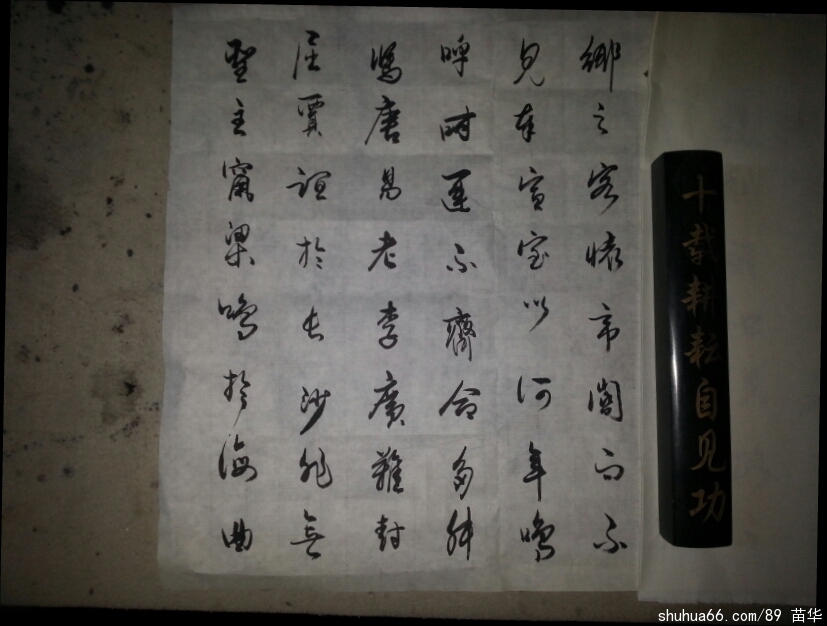 鄉之客懷帝閽而不
見奉宣室以何年嗚
呼時運不齊命多舛
馮唐易老李廣難封
屈賈誼於長沙非無
聖主竄梁鴻於海曲
十载耕耘自见功
shuhua66.com/89 苗华